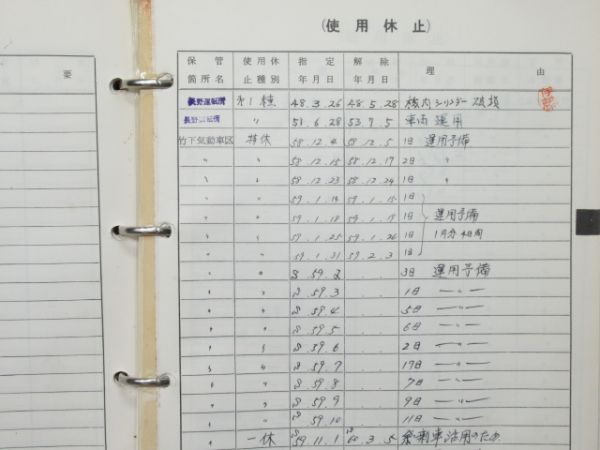 要
(使用休止)
保管箇所名 使用休止種別 指定年月日 解除年月日 理由
長野運転所 オ1種 48.3.26 48.5.28 機関シリンダー破損
長野運転所 〃 53.6.28 53.7.5 車両運用
竹下気動車区 特休 58.12.4 58.12.5 1日 運用予備
〃 〃 58.12.15 58.12.17 2日 〃
〃 〃 58.12.23 58.12.24 1日 〃
〃 〃 59.1.14 59.1.15 1日
〃 〃 59.1.18 59.1.19 1日 運用予備
〃 〃 59.1.25 59.1.26 1日 1月分 4日間
〃 〃 59.1.31 59.2.3 1日
〃 〃 59.2 3日 運用予備
〃 〃 59.3 1日 〃
〃 〃 59.4 5日 〃
〃 〃 59.5 6日 〃
〃 〃 59.6 2日 〃
〃 〃 59.7 17日 〃
〃 〃 59.8 7日 〃
〃 〃 59.9 9日 〃
〃 〃 59.10 11日 〃
〃 一休 59.11.1 60.3.5 活用のため